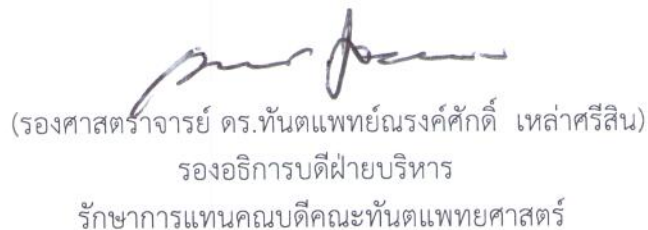 (รองศาสตราจารย์ ดร.ทันตแพทย์ณรงค์ศักดิ์ เหล่าศรีสิน)
รองอธิการบดีฝ่ายบริหาร
รักษาการแทนคณบดีคณะทันตแพทยศาสตร์